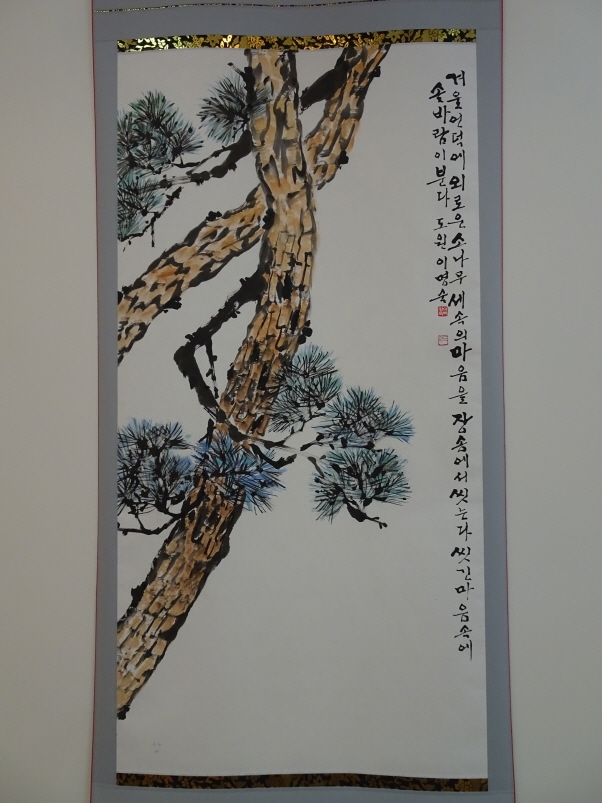 겨울언덕에 외로운소나무 세속의마음을 장송에서씻는다 씻긴마음속에
솔바람이분다 도원 이명숙